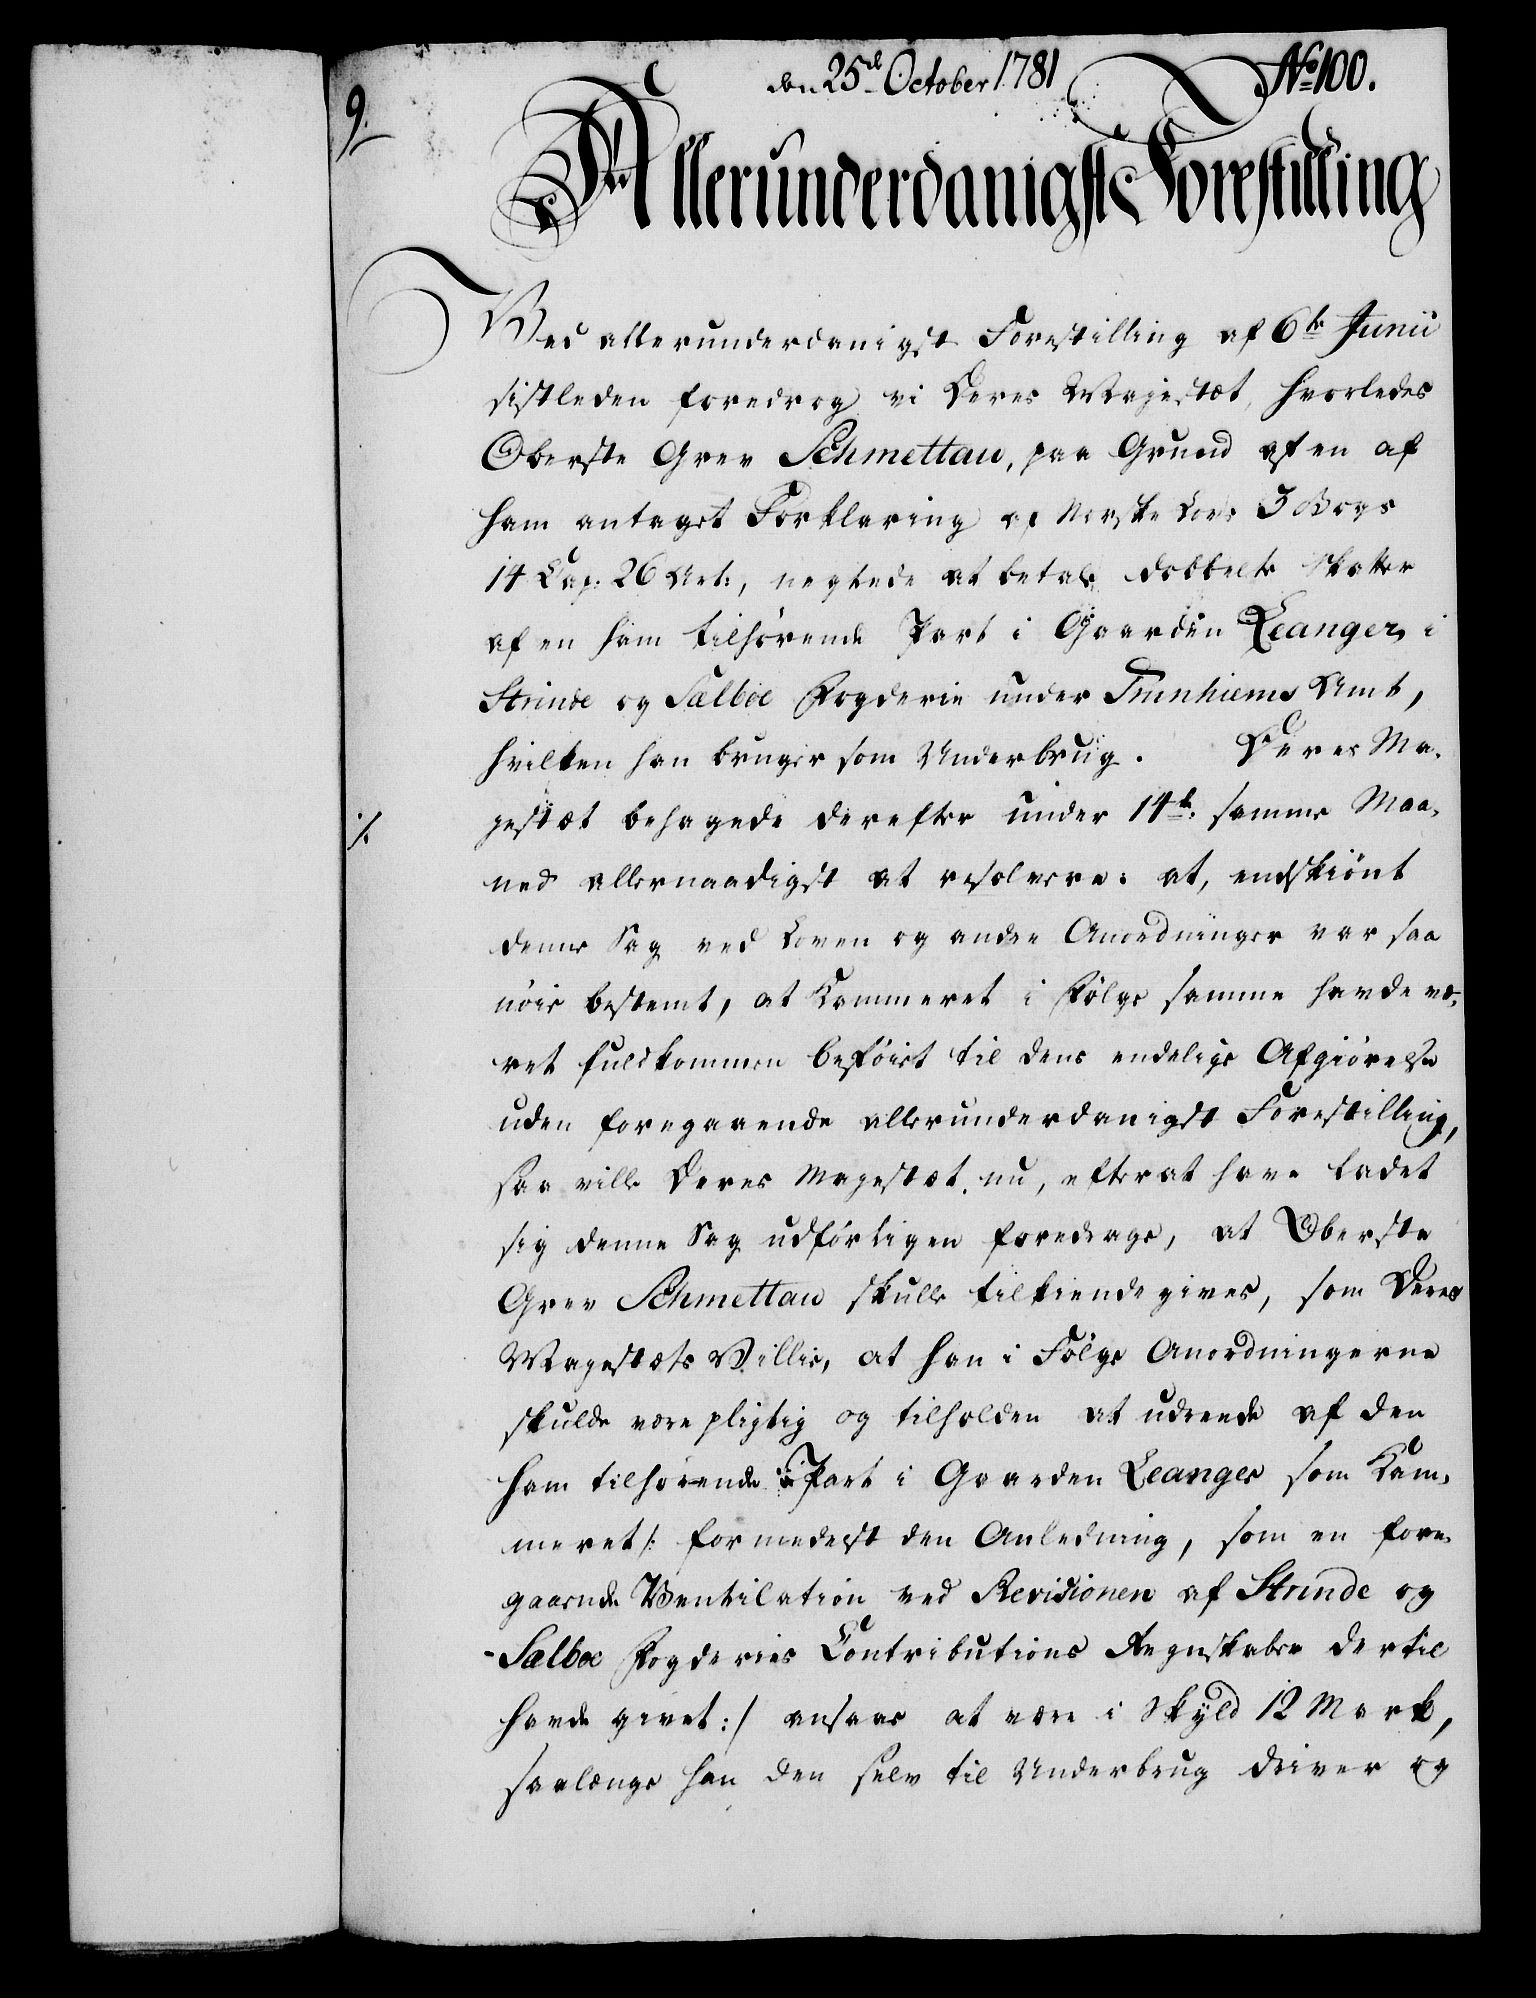 den 25d. October 1781
No. 100.
9.
Allerunderdanigste Forestilling
Ved allerunderdanigst Forestilling af 6te Junii
sistleden foredrog vi Deres Majestæt, hvorledes
Oberste Grev Schmettau, paa Grund af en af
ham antaget Forklaring af Norske Lovs 3 Bogs
14 Cap. 26 Art:, negtede at betale dobbelte Skatter
af en ham tilhørende Part i Gaarden Leangen i
Strinde og Sælboe Fogderie under Trunhiems Amt,
hvilken han bruger som Underbrug. Deres Ma-
jestæt behagede derefter under 14d. samme Maa-
ned allernaadigst at resolvere: at, endskiönt
denne Sag ved Loven og andre Anordninger var saa
nöie bestemt, at Kammeret i Følge samme havde væ-
ret fuldkommen beföiet til dens endelige Afgiörelse
uden foregaaende allerunderdanigst Forestilling,
saa ville Deres Majestæt nu, efter at have ladet
sig denne Sag udförligen foredrage, at Oberste
Grev Schmettau skulle tilkiendegives, som Deres
Majestæts Villie, at han i Fölge Anordningerne
skulde være pligtig og tilholden at udrede af den
ham tilhörende Part i Gaarden Leanger som Kam-
meret /: formedelst den Anledning, som en fore-
gaaende Ventilation ved Revisionen af Strinde og
Sælboe Fogderies Contributions Regnskaber dertil
havde givet :/ ansaae at være i Skyld 12 Mark,
saalænge han den selv til Underbrug driver og
./.